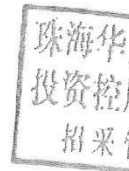 珠海华
投资控
招米